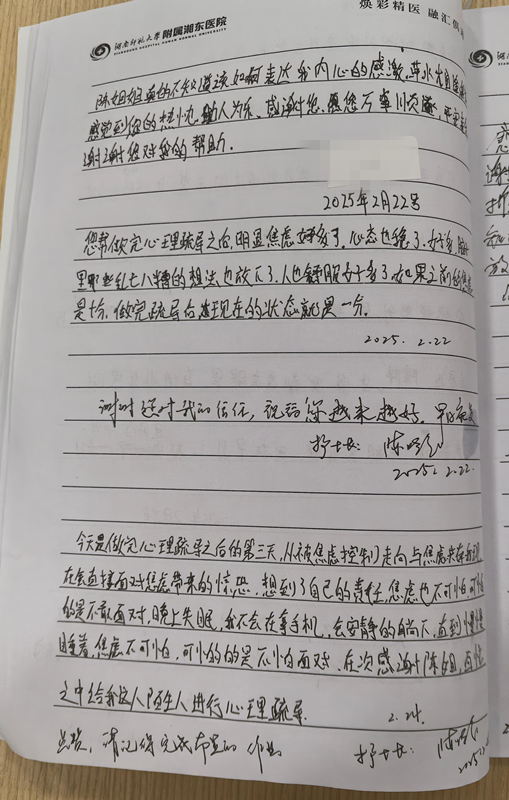 焕彩精医 融汇
湖南师范大学附属湘东医院
陈姐姐真的不知道该如何表达我内心的感激,萍水相逢
感觉到您的热心 助人为乐、感谢您、愿您万事顺遂、平安
谢谢您对我的帮助.
2025年2月22号
您帮做完心理疏导之后,明显焦虑好多了,心态也稳了,好多脑
里那些乱七八糟的想法也放下了,人也舒服好多了,如果之前的焦虑
是十分,做完疏导后发现在的状态就是一分.
2025.2.22
谢谢您对我的信任,祝福您越来越好,早日
护士长: 陈
2025.2.22.
今天是做完心理疏导之后的第三天,从被焦虑控制走向与焦虑共存到现
在会直接面对焦虑带来的惊恐,想到了自己的责任,焦虑也不可怕可怕
的是不敢面对,晚上失眠,我不会在拿手机,会安静的躺下,直到慢慢
睡着,焦虑不可怕,可怕的是不怕面对.在次感谢陈姐,百忙
之中给我这人陌生人进行心理疏导.
2.24.
点赞,请记得完成布置的作业
护士长: 陈
2025.2